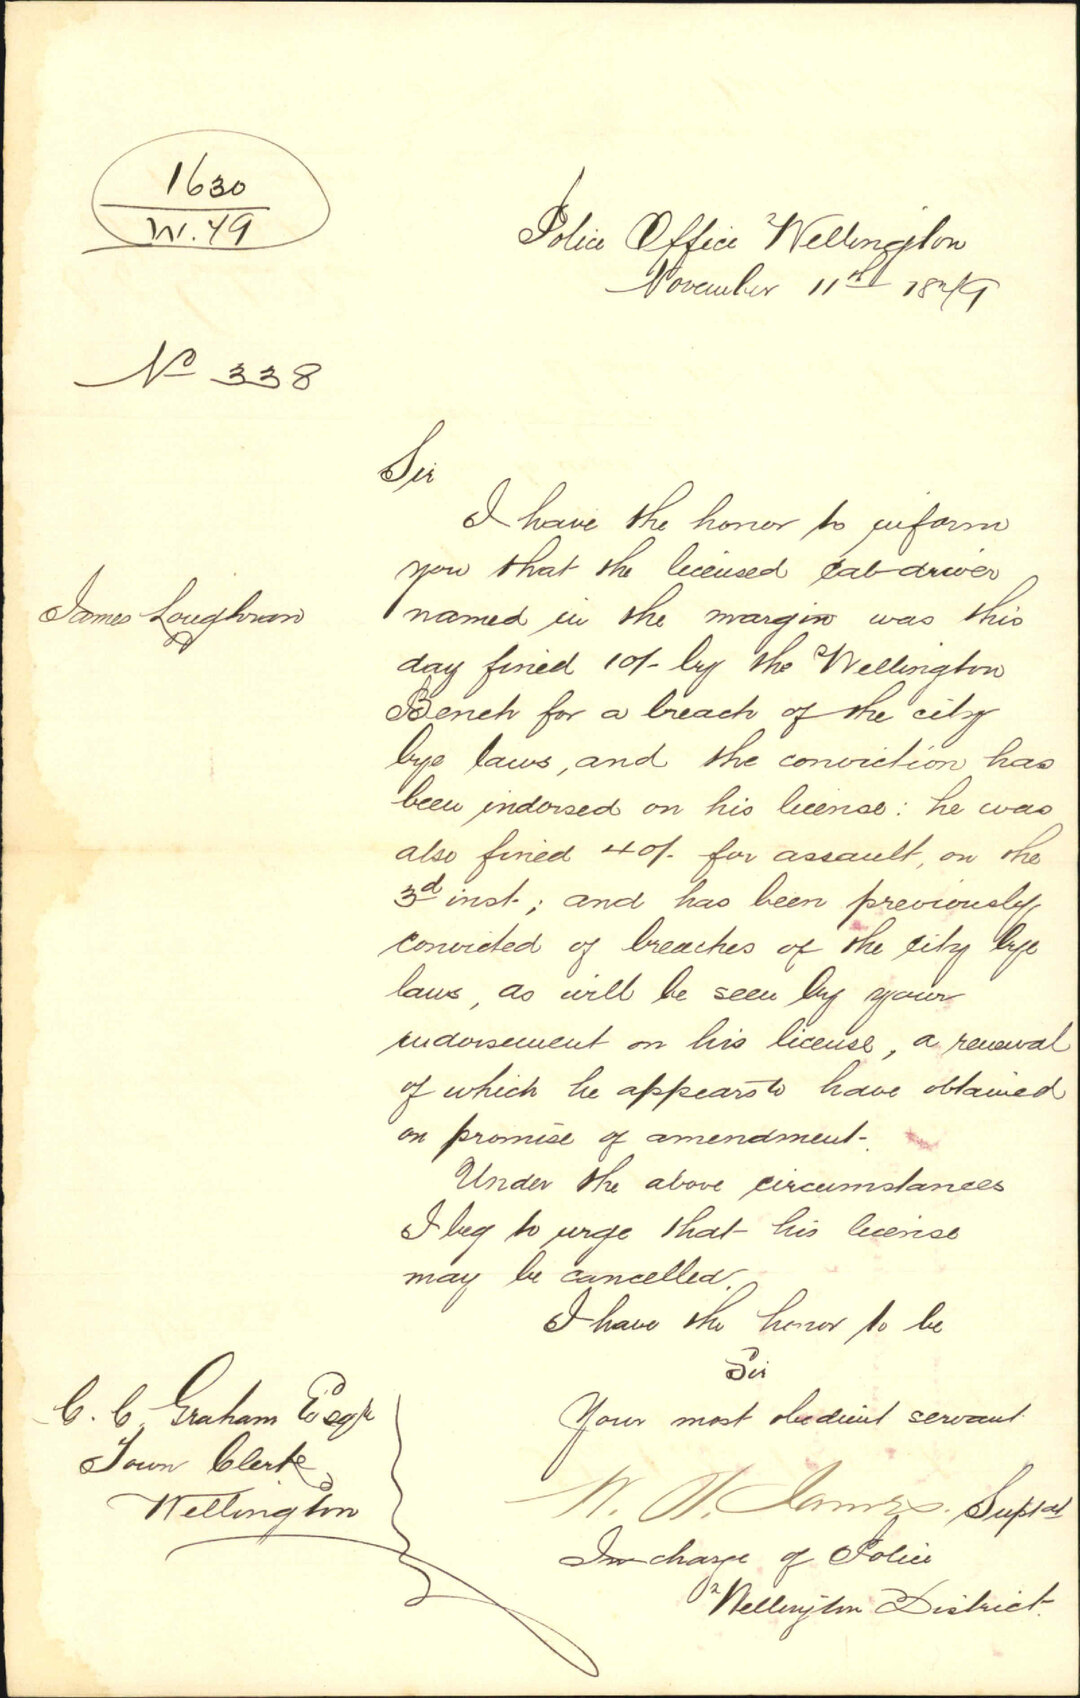 1630
W. 79
Police Office Wellington
November 11th 1879
No 338
Sir
I have the honor to inform
you that the licensed cab-driver
James Loughran
named in the margin was this
day fined 10/- by the Wellington
Bench for a breach of the city
bye laws, and the conviction has
been indorsed on his license: he was
also fined 40/- for assault, on the
3d inst.; and has been previously
convicted of breaches of the city bye
laws, as will be seen by your
indorsement on his license, a renewal
of which he appears to have obtained
on promise of amendment.
Under the above circumstances
I beg to urge that his license
may be cancelled.
I have the honor to be
Sir
Your most obedient servant
W. H. James. Suptdt
In charge of Police
Wellington District.
C. C. Graham Esqr
Town Clerk
Wellington